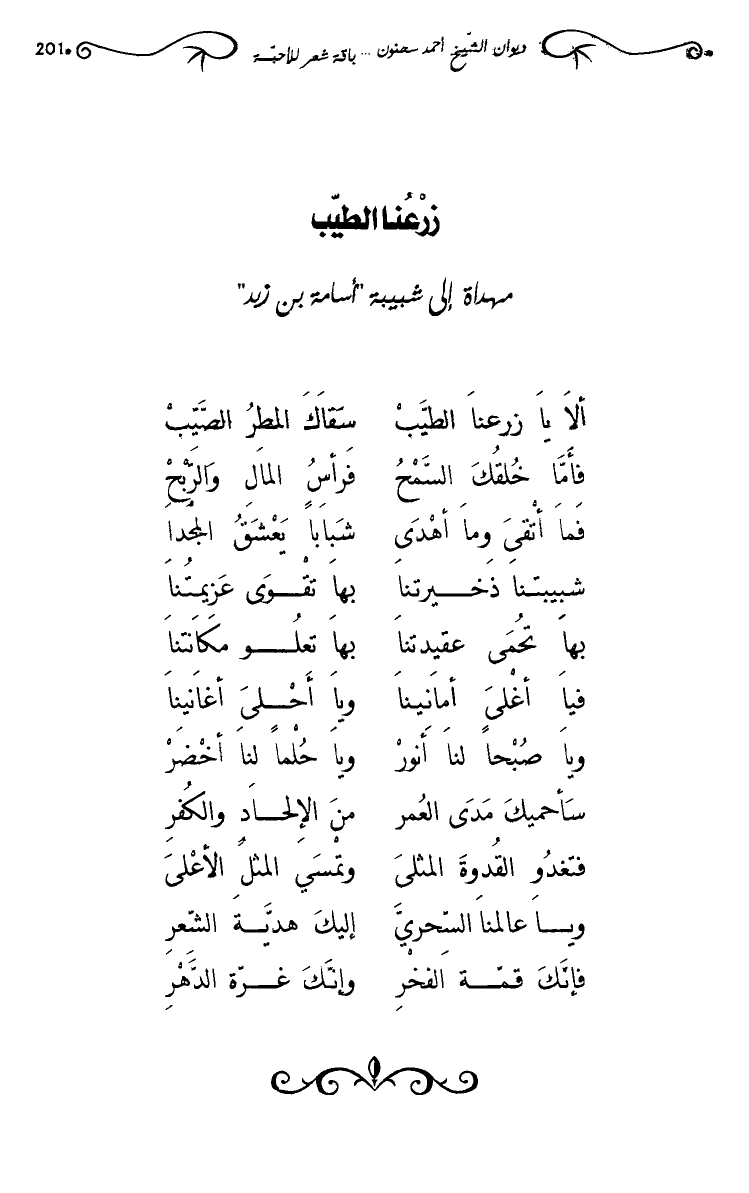 ديوان الشّيخ أحمد سحنون ... باقة شعر للأحبّة 201
زرْعُنا الطيّب
مهداة إلى شبيبة "أسامة بن زيد"
ألاَ ياَ زرعناَ الطيَّبْ سقاَكَ المطرُ الصَّيّبْ
فأَمَّا خُلقُكَ السَّمْحُ فَرأسُ المالِ وَالرِّبْحْ
فَماَ أَتْقىَ وماَ أهْدَى شبَاباً يَعْشَقُ المجداَ
شبيبتـَنا ذَخــيرتناَ بهاَ تقْــوَى عَزيمتُناَ
بهاَ تُحمَى عقيدتناَ بهاَ تعلُــو مكاَنتناَ
فياَ أغْلىَ أماَنيناَ وياَ أَحْــلىَ أغاَنيناَ
وياَ صُبْحاً لناَ أنورْ وياَ حُلْماً لناَ أخْضرْ
سَأحميكَ مَدَى العُمرِ منَ الإلحــادِ والكُفرِ
فتَغدُو القُدوةَ المثلىَ وتمْسَي المثلَ الأعْلىَ
ويــاَ عالمناَ السّحريَّ إليكَ هديَّــةَ الشّعرِ
فإنَّكَ قمّــة الفخْرِ وإنَّكَ غــرّة الدَّهْرِ